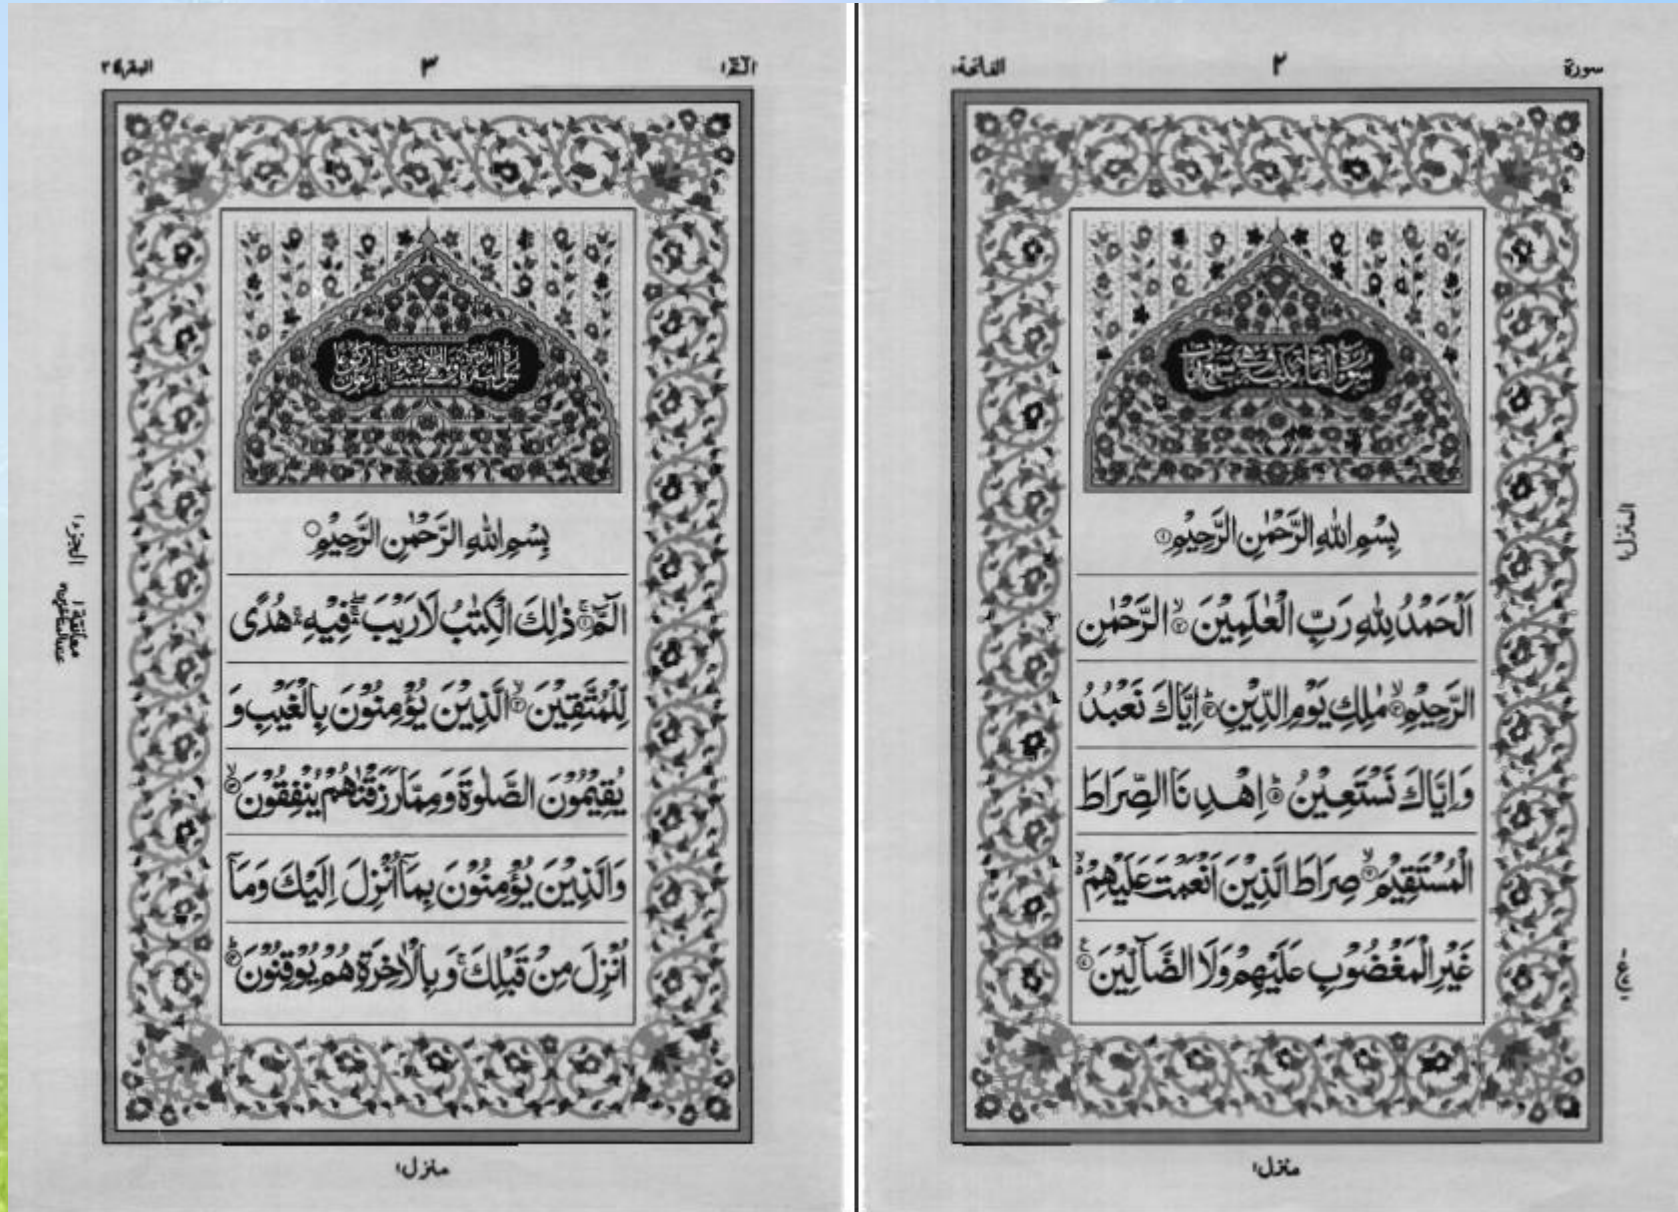 سورة ٢ الفاتحة١
بِسْمِ اللّٰهِ الرَّحْمٰنِ الرَّحِيْمِ ١
اَلْحَمْدُ لِلّٰهِ رَبِّ الْعٰلَمِيْنَ ۙ٢ الرَّحْمٰنِ
الرَّحِيْمِ ۙ٣ مٰلِكِ يَوْمِ الدِّيْنِ ؕ٤ اِيَّاكَ نَعْبُدُ
وَاِيَّاكَ نَسْتَعِيْنُ ؕ٥ اِهْدِنَا الصِّرَاطَ
الْمُسْتَقِيْمَ ۙ٦ صِرَاطَ الَّذِيْنَ اَنْعَمْتَ عَلَيْهِمْ ۙ
غَيْرِ الْمَغْضُوْبِ عَلَيْهِمْ وَلَا الضَّآلِّيْنَ ۧ٧
المنزل١
منزل١
الٓمّٓ١ ٣ البقرة٢
بِسْمِ اللّٰهِ الرَّحْمٰنِ الرَّحِيْمِ
الٓمّٓ ۚ١ ذٰلِكَ الْكِتٰبُ لَا رَيْبَ ۛۖ فِيْهِ ۛۚ هُدًى
لِّلْمُتَّقِيْنَ ۙ٢ الَّذِيْنَ يُؤْمِنُوْنَ بِالْغَيْبِ وَ
يُقِيْمُوْنَ الصَّلٰوةَ وَمِمَّا رَزَقْنٰهُمْ يُنْفِقُوْنَ ۙ٣
وَالَّذِيْنَ يُؤْمِنُوْنَ بِمَآ اُنْزِلَ اِلَيْكَ وَمَآ
اُنْزِلَ مِنْ قَبْلِكَ ۚ وَبِالْاٰخِرَةِ هُمْ يُوْقِنُوْنَ ؕ٤
الجزء١
معانقة ١
منزل١